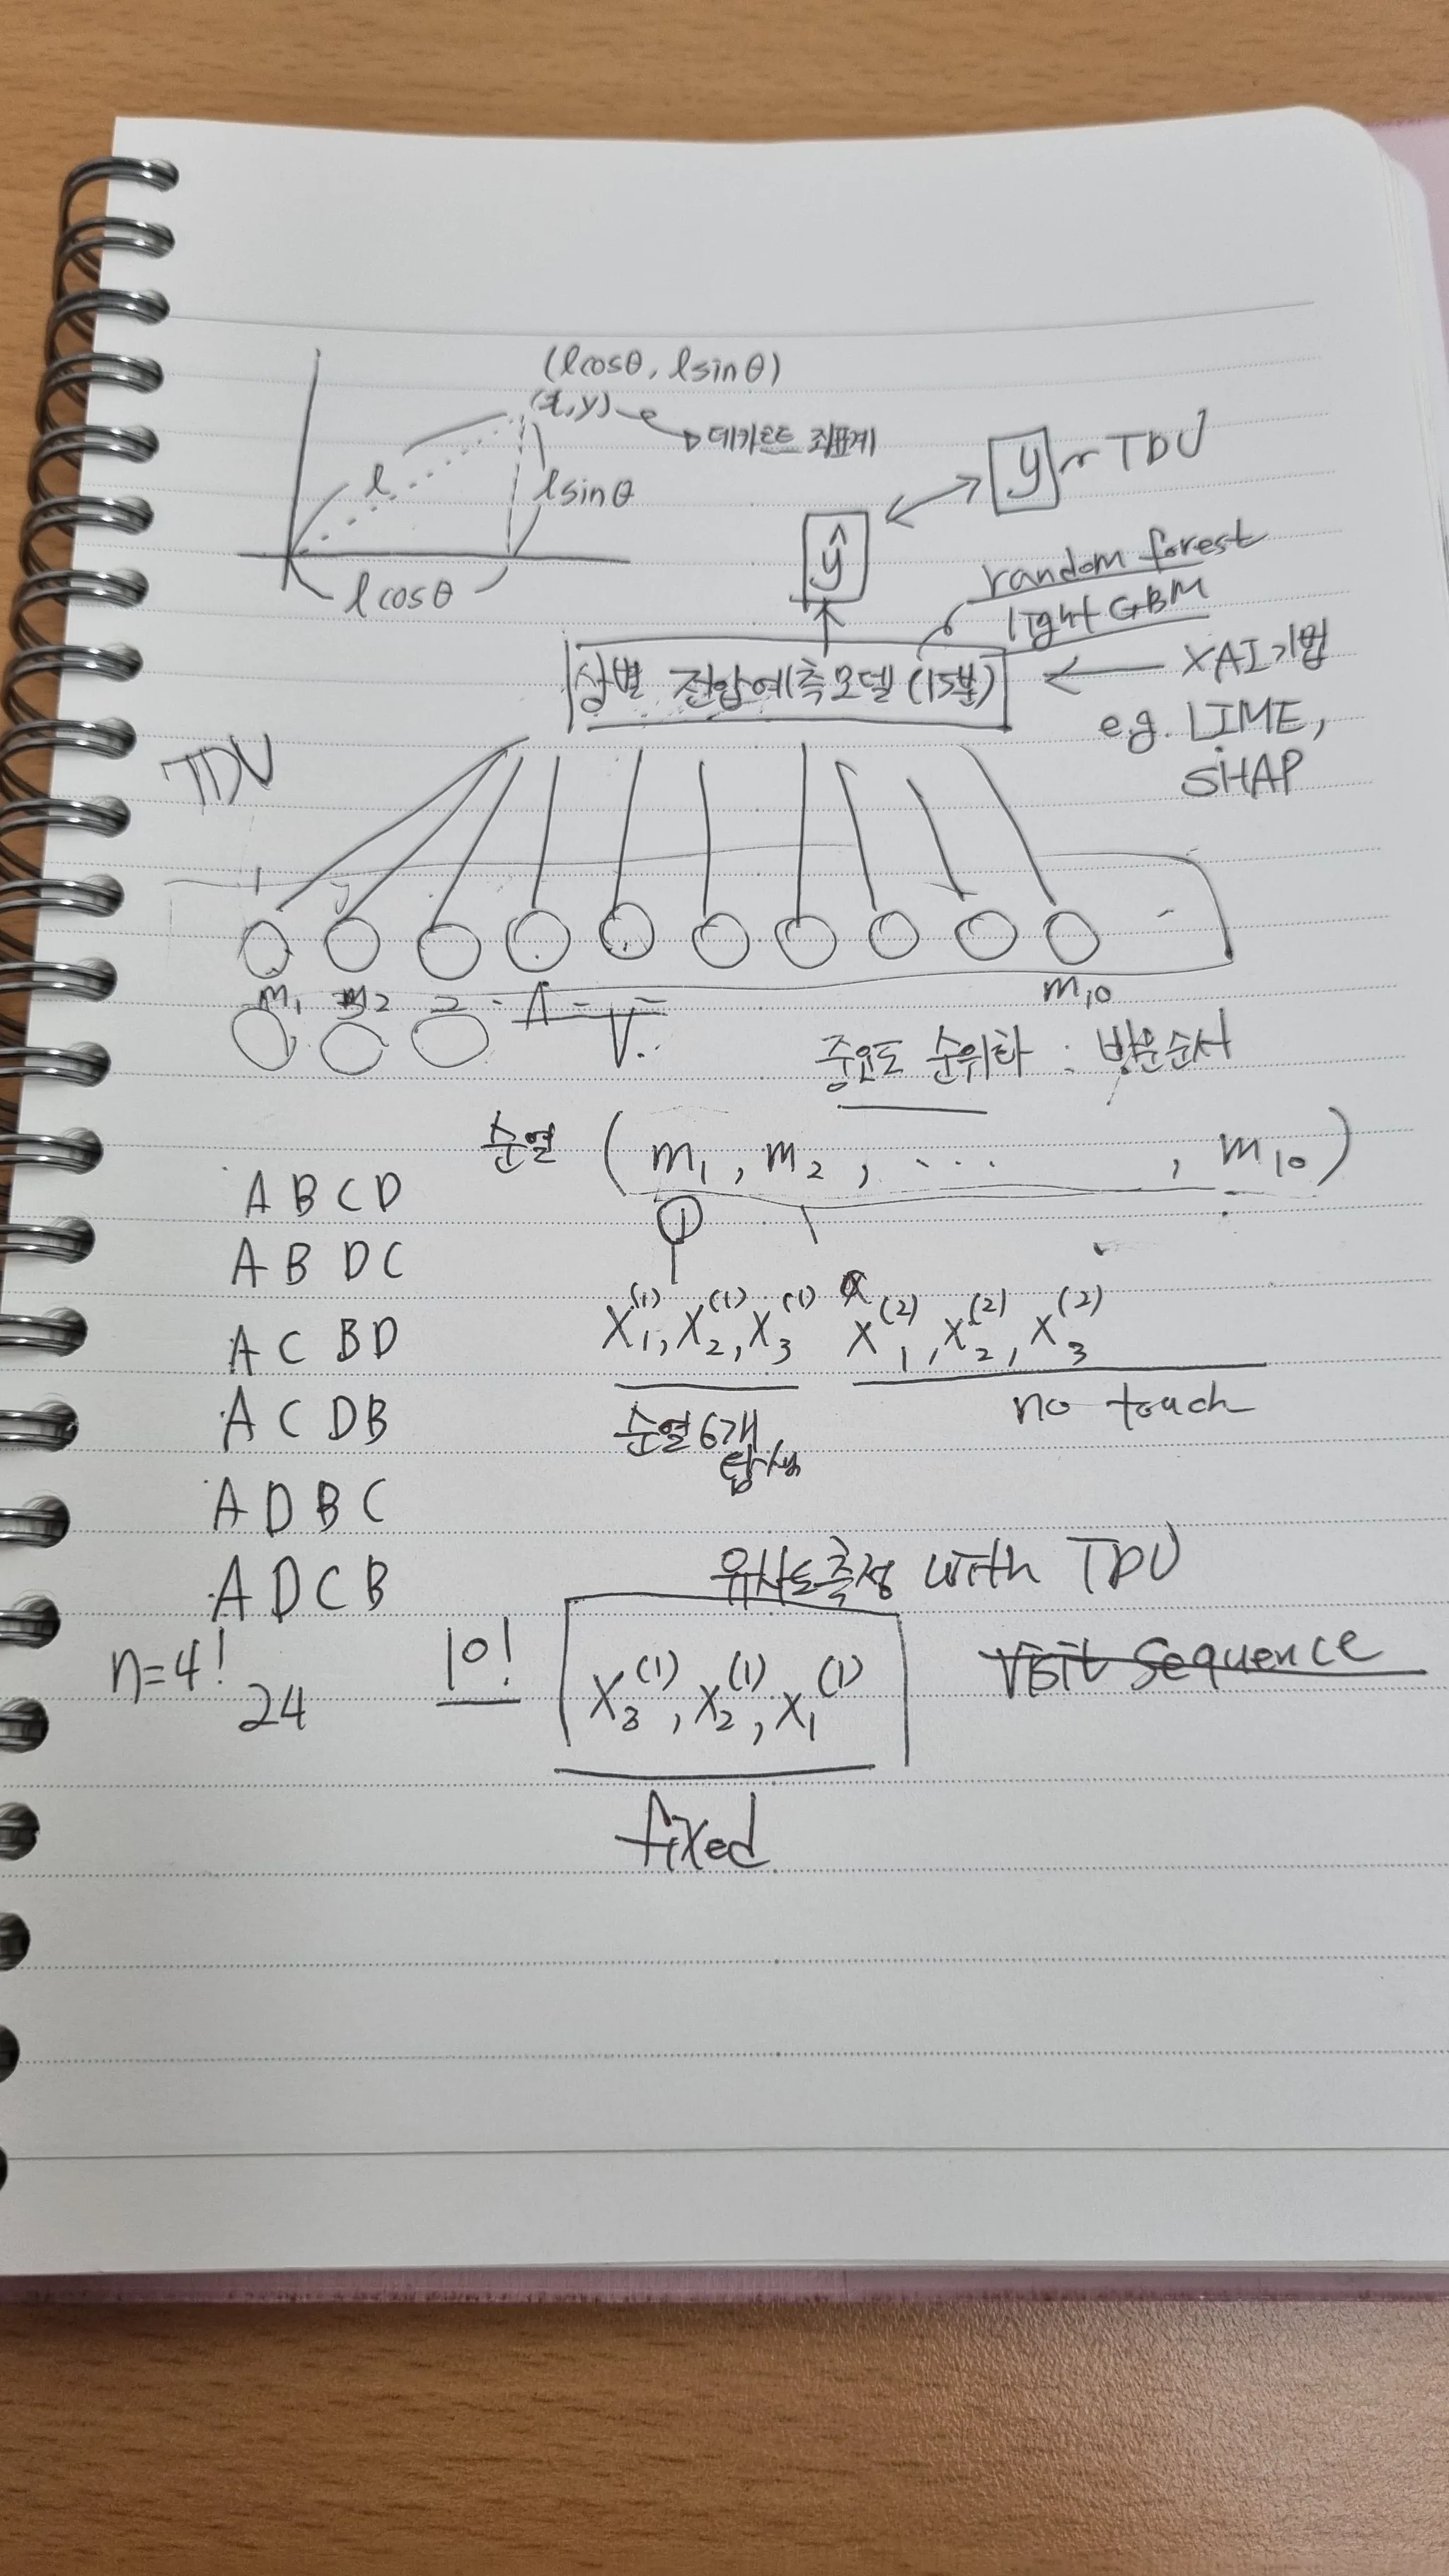 (lcosθ, lsinθ)
(x,y)
데카르트 좌표계
l
lsinθ
lcosθ
y TDU
ŷ
random forest
light GBM
상별 전압예측모델 (15분)
XAI 기법
e.g. LIME,
SHAP
TDU
m₁ m₂ m₁₀
중요도 순위화 : 방문순서
순열 (m₁, m₂, ... , m₁₀)
A B C D
A B D C
A C B D
A C D B
A D B C
A D C B
n=4!
24
X₁⁽¹⁾, X₂⁽¹⁾, X₃⁽¹⁾ X₁⁽²⁾, X₂⁽²⁾, X₃⁽²⁾
순열 6개
탐색
no touch
유사도측정 with TDU
10!
X₃⁽¹⁾, X₂⁽¹⁾, X₁⁽¹⁾
Visit Sequence
fixed